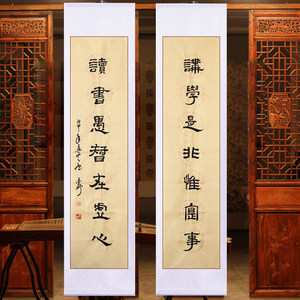 講學是非惟實事
讀書愚智在虛心